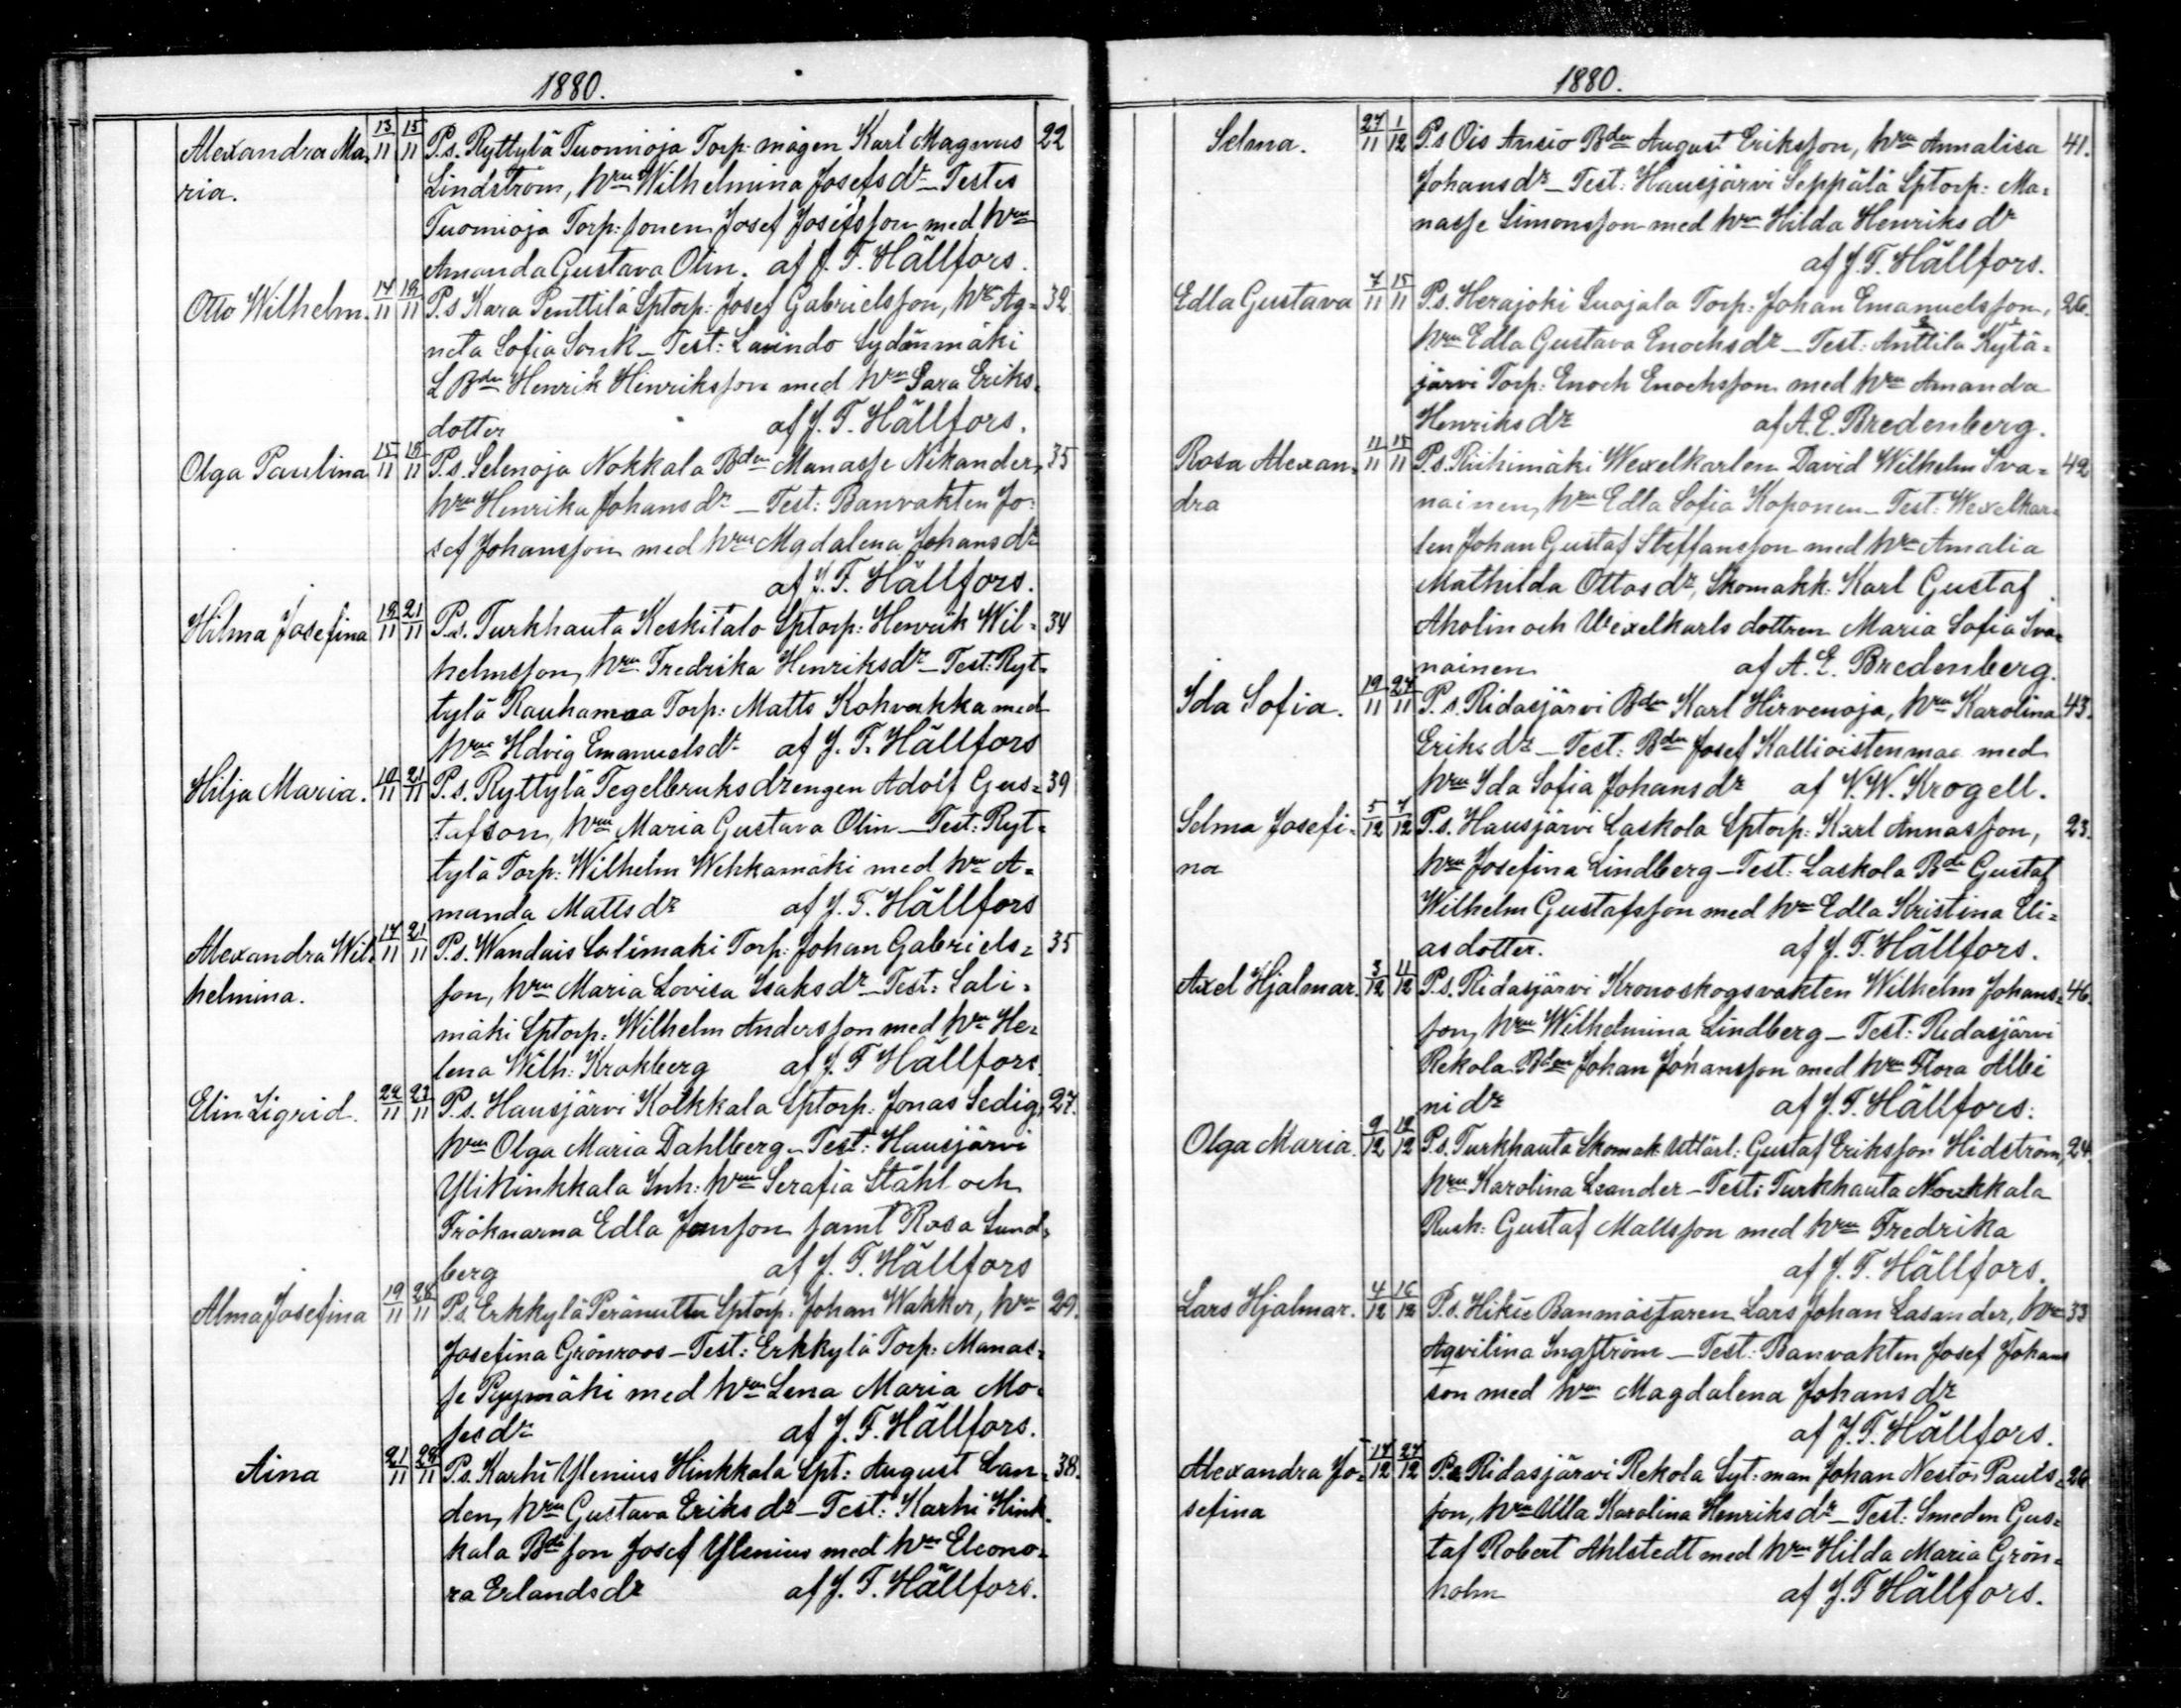 1880.
Alexandra Ma= 13/11 15/11 P.s. Ryttylä Tuomioja Torp. mågen Karl Magnus 22
ria. Lindström, hru Wilhelmina Josefsdr – Testes
Tuomioja Torp: sonen Josef Josefsson med hru
Amanda Gustava Olin. af J. F. Hällfors.
Otto Wilhelm. 14/11 /11 P.s Kara Penttilä Sptorp: Josef Gabrielsson, hru Ag= 32
neta Sofia Sonk – Test: Laundo Sydänmäki
L Bden Henrik Henriksson med hru Sara Eriks=
dotter af J. F. Hällfors.
Olga Paulina 15/11 /11 P.s. Selenoja Nokkala Bden Manasse Nikander, 35
hru Henrika Johansdr – Test: Banvakten Jo=
sef Johansson med hru Mgdalena Johansdr
af J. F. Hällfors.
Hilma Josefina /11 21/11 P.s. Turkhauta Keskitalo Sptorp: Henrik Wil= 34
helmsson, hru Fredrika Henriksdr – Test: Ryt=
tylä Rauhamaa Torp: Matts Kohvakka med
hru Hdvig Emanuelsdr af J. F. Hällfors
Hilja Maria. 19/11 21/11 P.s. Ryttylä Tegelbruksdrengen Adolf Gus= 39
tafson, hru Maria Gustava Olin – Test: Ryt=
tylä Torp: Wilhelm Wehkamäki med hru A=
manda Mattsdr af J. F. Hällfors
Alexandra Wil= 14/11 21/11 P.s. Wandais Salimäki Torp: Johan Gabriels= 35
helmina. son, hru Maria Lovisa Isaksdr – Test: Sali=
mäki Sptorp: Wilhelm Andersson med hru He=
lena Wilh: Krokberg af J. F Hällfors.
Elin Sigrid. 22/11 23/11 P.s. Hausjärvi Kolkkala Sptorp: Jonas Sedig, 27.
hru Olga Maria Dahlberg – Test: Hausjärvi
Ylikinkkala Inh: hru Serafia Ståhl och
Fröknarna Edla Jonsson samt Rosa Lund=
berg af J. F. Hällfors
Alma Josefina 19/11 28/11 P.s. Erkkylä Peränuttu Sptorp. Johan Wakker, hru 29.
Josefina Grönroos – Test: Erkkylä Torp: Manas=
se Pyymäki med hru Lena Maria Mo=
sesdr af J. F. Hällfors.
Aina 21/11 28/11 P.s. Karhi Ylenius Hinkkala Spt: August Lan= 38.
den, hru Gustava Eriksdr – Test: Karhi Hink=
kala Bde son Josef Ylenius med hru Eleono=
ra Erlandsdr af J. F. Hällfors.
1880.
Selma. 27/11 1/12 P.s Ois Ansio Bden August Eriksson, hru Annalisa 41.
Johansdr – Test: Hausjärvi Seppälä Sptorp: Ma=
nasse Simonsson med hru Hilda Henriksdr
af J. F. Hällfors.
Edla Gustava 7/11 15/11 P.s. Herajoki Suojala Torp: Johan Emanuelsson, 26.
hru Edla Gustava Enochsdr – Test: Anttila Kytä=
järvi Torp: Enoch Enochsson med hru Amanda
Henriksdr af A. E. Bredenberg.
Rosa Alexan= 11/11 15/11 P.s. Riihimäki Wexelkarlen David Wilhelm Iva= 42
dra nainen, hru Edla Sofia Koponen – Test: Wexelkar=
len Johan Gustaf Steffansson med hru Amalia
Mathilda Ottosdr, Skomakk: Karl Gustaf
Aholin och Wexelkarls dottren Maria Sofia Iva=
nainen af A. E. Bredenberg.
Ida Sofia. 19/11 27/11 P.s. Ridasjärvi Bden Karl Hirvenoja, hru Karolina 43.
Eriksdr – Test: Bden Josef Kallioistenmaa med
hru Ida Sofia Johansdr af N. W. Krogell.
Selma Josefi= 5/12 7/12 P.s. Hausjärvi Laskola Sptorp: Karl Annasson, 23.
na hru Josefina Lindberg – Test: Laskola Bde Gustaf
Wilhelm Gustafsson med hru Edla Kristina Eli=
asdotter. af J. F. Hällfors.
Axel Hjalmar. 3/12 11/12 P.s. Ridasjärvi Kronoskogsvakten Wilhelm Johans= 46.
son, hru Wilhelmina Lindberg – Test: Ridasjärvi
Rekola Bden Johan Johansson med hru Flora Albi
nidr af J. F. Hällfors.
Olga Maria. 9/12 12/12 P.s. Turkhauta Skomak: Utlärl: Gustaf Eriksson Hidström, 24.
hru Karolina Leander – Test: Turkhauta Noukkala
Rush: Gustaf Mattsson med hru Fredrika
af J. F. Hällfors.
Lars Hjalmar. 4/12 16/12 P.s. Hikie Banmästaren Lars Johan Lasander, hru 33
Aqvilina Ingström – Test: Banvakten Josef Johans
son med hru Magdalena Johansdr
af J. F. Hällfors.
Alexandra Jo= 17/12 27/12 P.s Ridasjärvi Rekola Syt: man Johan Nestor Pauls= 26
sefina son, hru Ulla Karolina Henriksdr – Test: Smeden Gus=
taf Robert Ahlstedt med hru Hilda Maria Grön=
holm af J. F Hällfors.